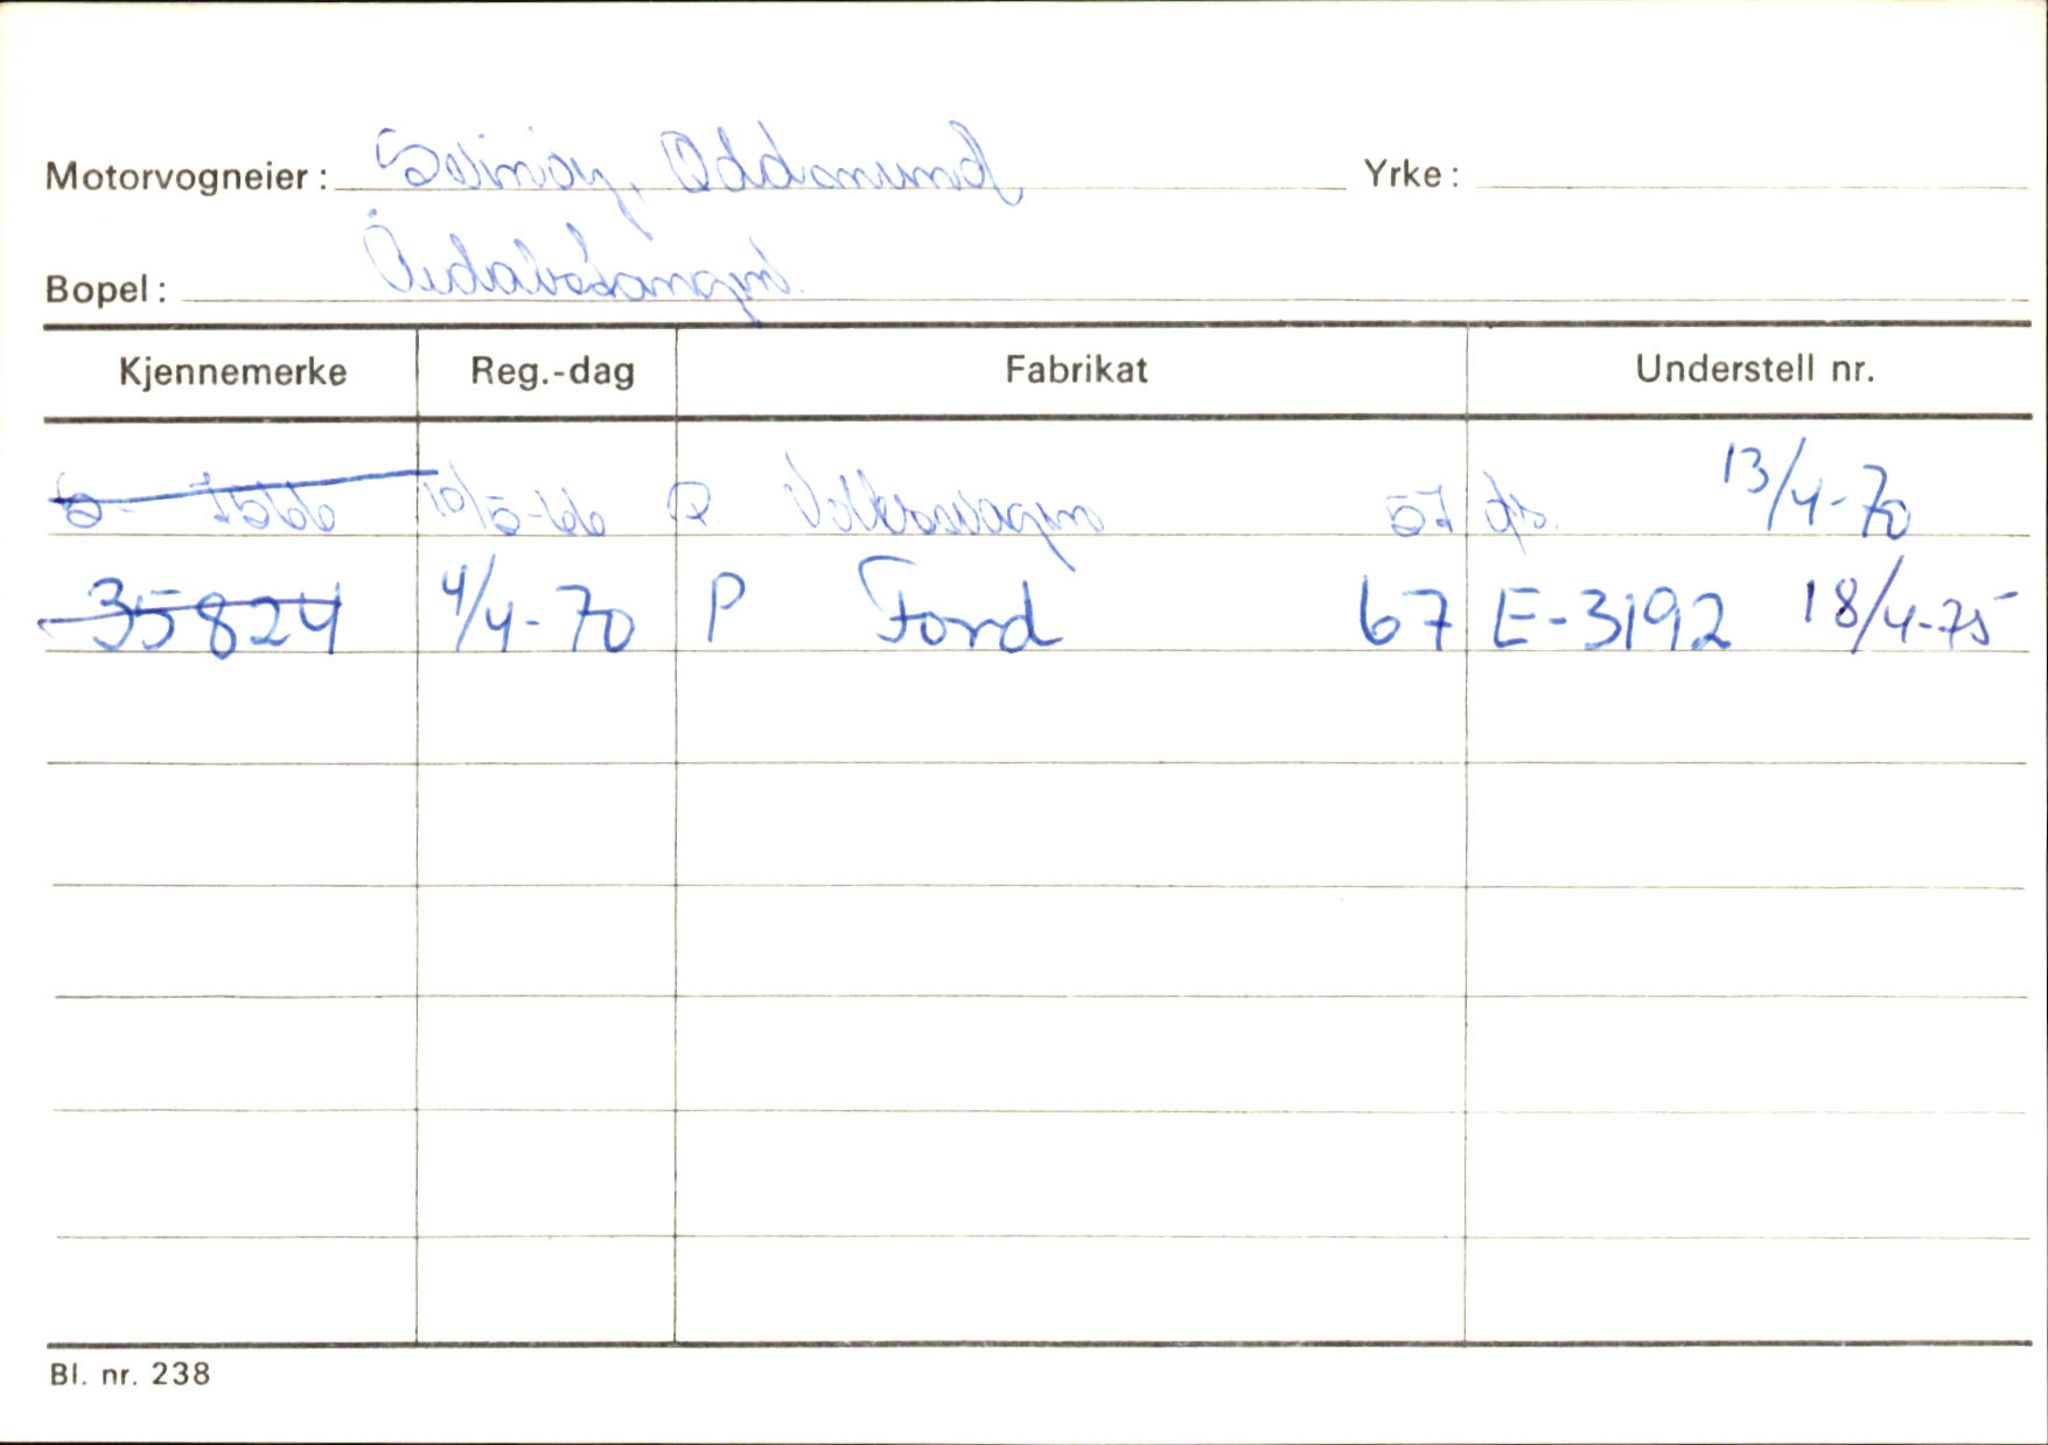 Motorvogneier: Svinøy, Oddmund Yrke:
Bopel: Årdalstangen.
Kjennemerke Reg.-dag Fabrikat Understell nr.
S- 7566 10/5-66 P. Volkswagen 57 13/4-70
35824 4/4-70 P Ford 67 E-3192 18/4-75
Bl. nr. 238